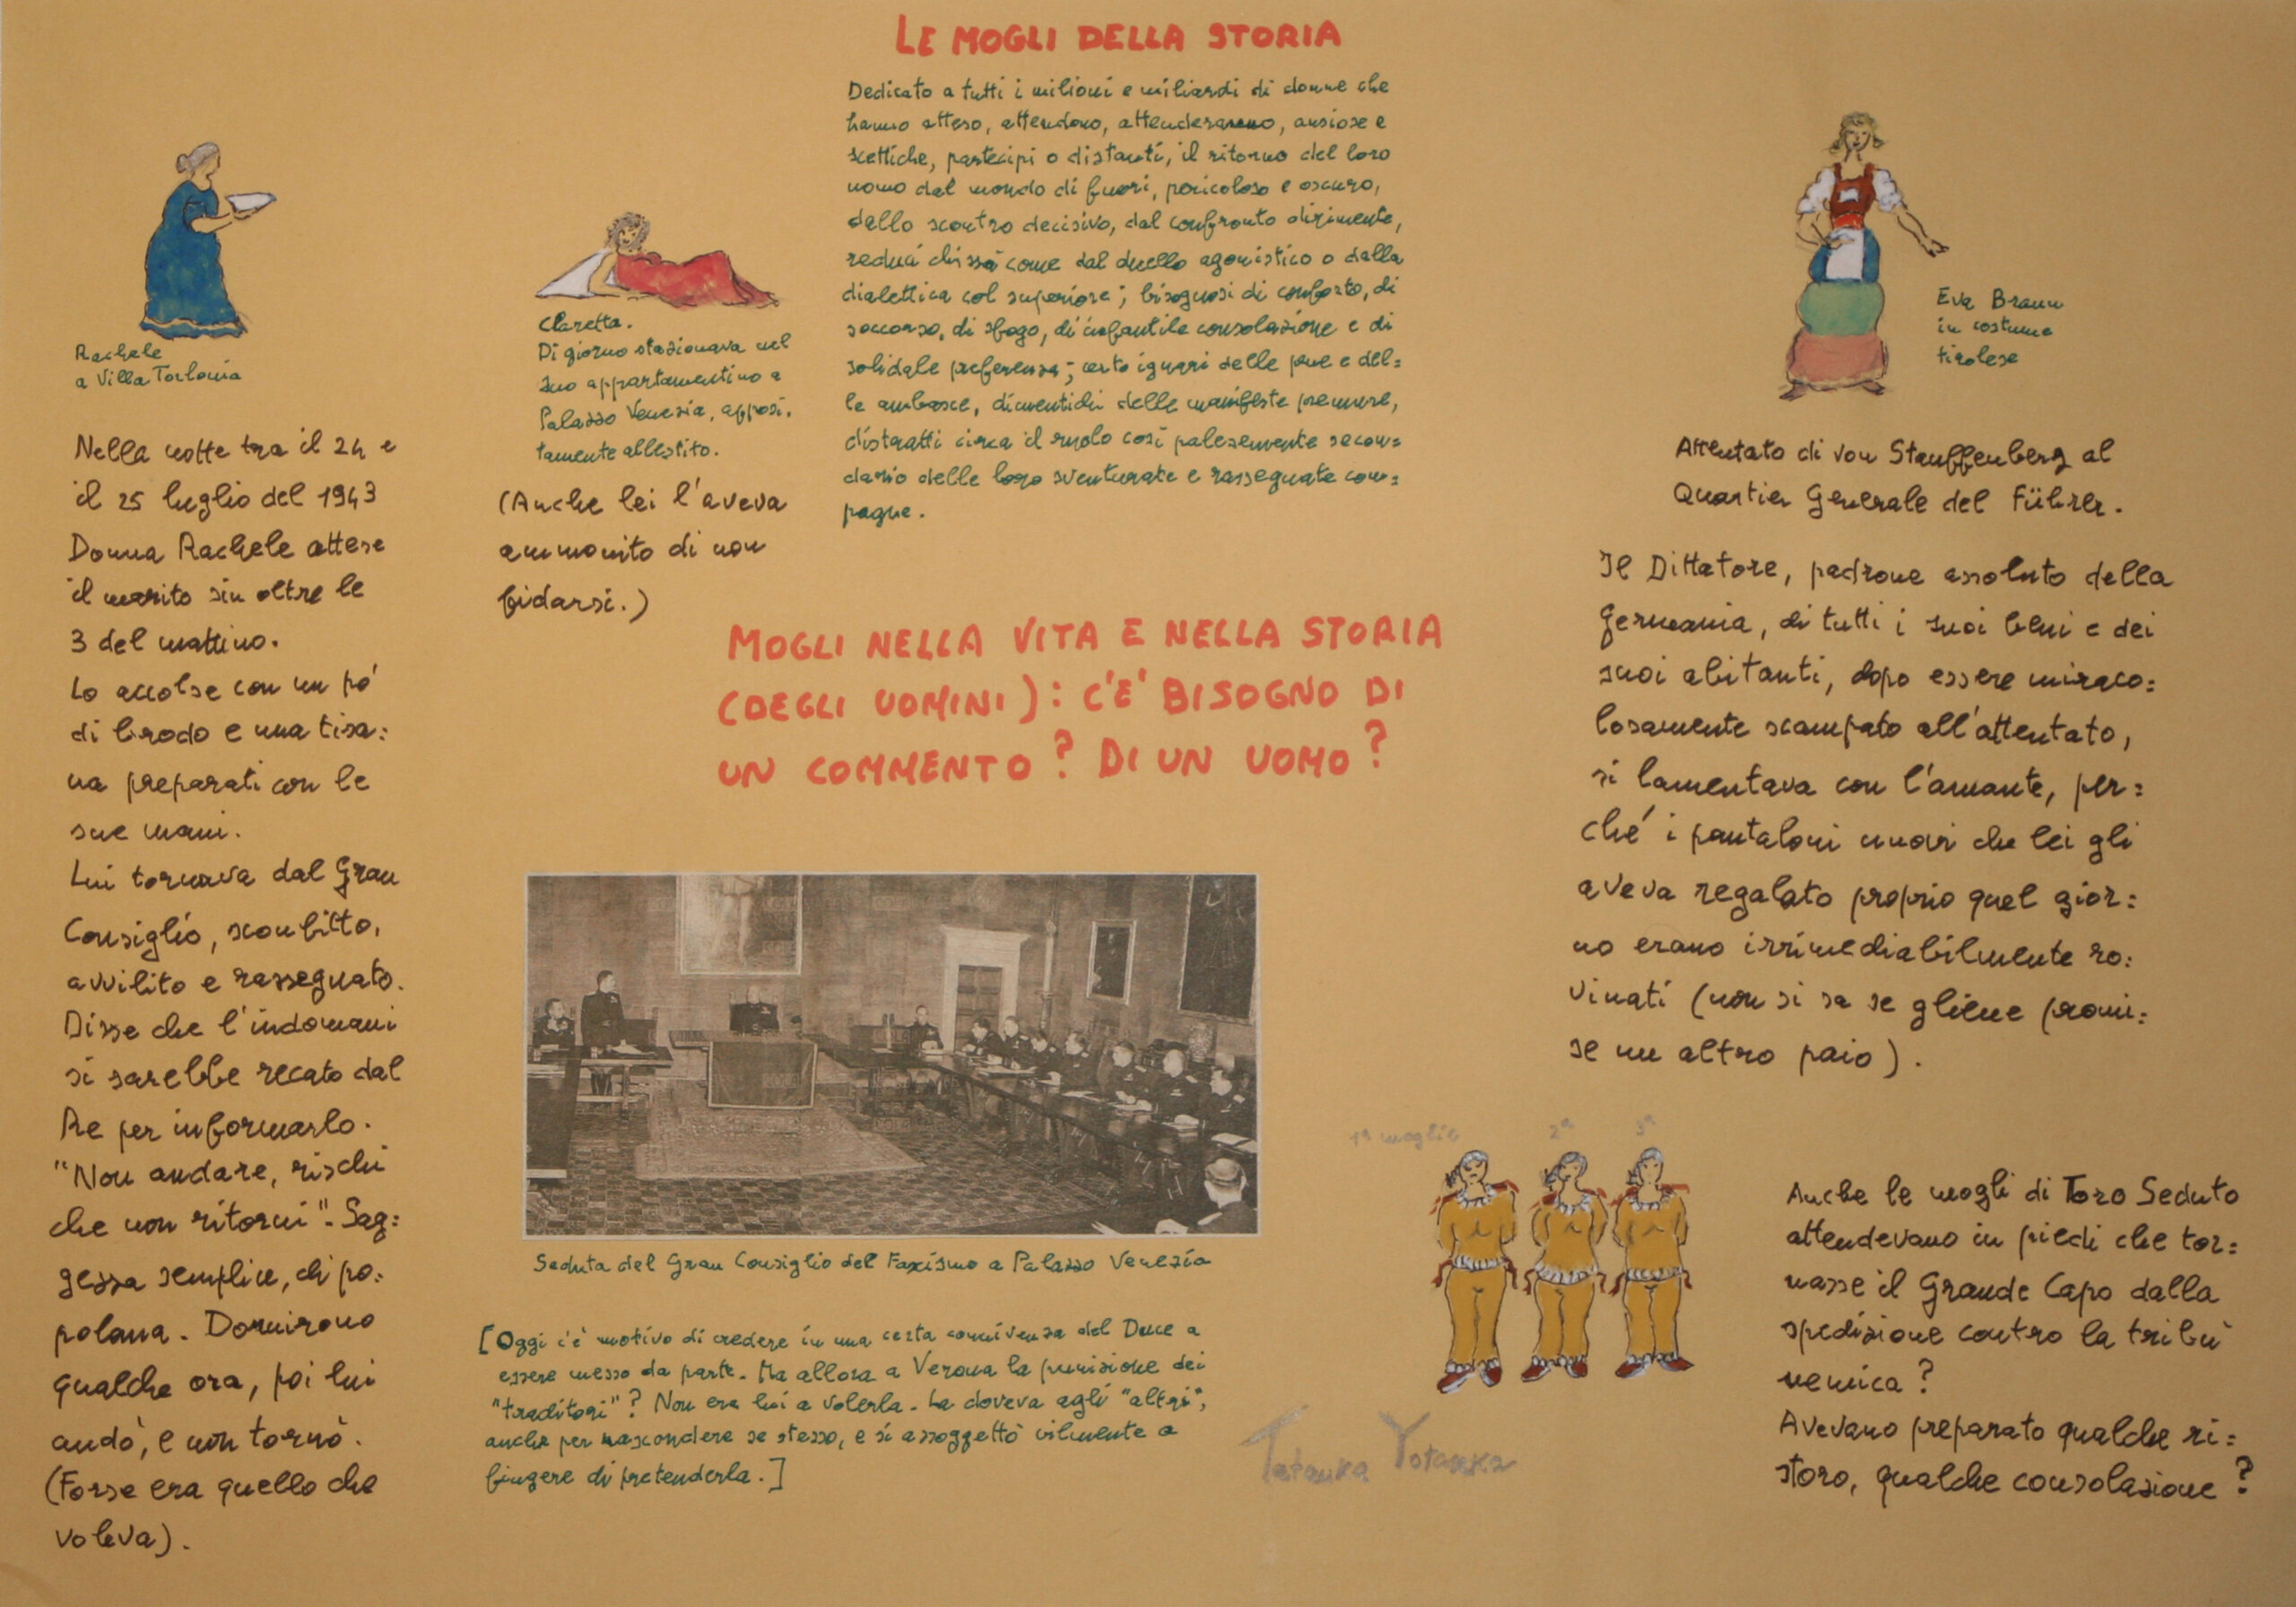 LE MOGLI DELLA STORIA
Dedicato a tutti i milioni e miliardi di donne che
hanno atteso, attendono, attenderanno, ansiose e
scettiche, partecipi o distanti, il ritorno del loro
uomo dal mondo di fuori, pericoloso e oscuro,
dallo scontro decisivo, dal confronto dirimente,
reduci chissà come dal duello agonistico o dalla
dialettica col superiore; bisognosi di conforto, di
soccorso, di sfogo, di infantile consolazione e di
solidale preferenza; certo ignari delle pene e del=
le ambasce, dimentichi delle manifeste premure,
distratti circa il ruolo così palesemente secon=
dario delle loro sventurate e rassegnate com=
pagne.
Rachele
a Villa Torlonia
Nella notte tra il 24 e
il 25 luglio del 1943
Donna Rachele attese
il marito sin oltre le
3 del mattino.
Lo accolse con un pó
di brodo e una tisa=
na preparati con le
sue mani.
Lui tornava dal Gran
Consiglio, sconfitto,
avvilito e rassegnato.
Disse che l'indomani
si sarebbe recato dal
Re per informarlo.
"Non andare, rischi
che non ritorni". Sag=
gezza semplice, di po=
polana. Dormirono
qualche ora, poi lui
andò, e non tornò.
(Forse era quello che
voleva).
Claretta.
Di giorno stazionava nel
suo appartamentino a
Palazzo Venezia, apposi=
tamente allestito.
(Anche lei l'aveva
ammonito di non
fidarsi.)
MOGLI NELLA VITA E NELLA STORIA
(DEGLI UOMINI): C'E' BISOGNO DI
UN COMMENTO? DI UN UOMO?
Seduta del Gran Consiglio del Fascismo a Palazzo Venezia
[Oggi c'è motivo di credere in una certa connivenza del Duce a
essere messo da parte. Ma allora a Verona la punizione dei
"traditori"? Non era lui a volerla. La doveva agli "altri",
anche per nascondere se stesso, e si assoggettò vilmente a
fingere di pretenderla.]
Eva Braun
in costume
tirolese
Attentato di von Stauffenberg al
Quartier Generale del Führer.
Il Dittatore, padrone assoluto della
Germania, di tutti i suoi beni e dei
suoi abitanti, dopo essere miraco=
losamente scampato all'attentato,
si lamentava con l'amante, per=
ché i pantaloni nuovi che lei gli
aveva regalato proprio quel gior=
no erano irrimediabilmente ro=
vinati (non si sa se gliene promi=
se un altro paio).
1ª moglie 2ª 3ª
Tatanka Yotanka
Anche le mogli di Toro Seduto
attendevano in piedi che tor=
nasse il Grande Capo dalla
spedizione contro la tribù
nemica?
Avevano preparato qualche ri=
storo, qualche consolazione?